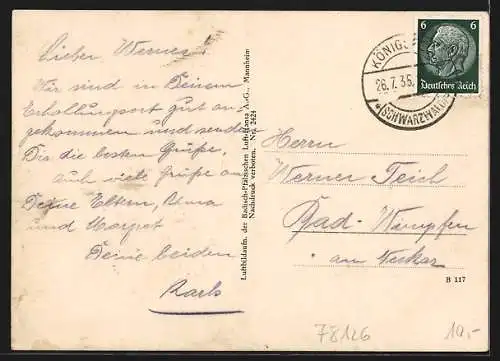 Lieber Werner!
Wir sind in Deinem
Erhollungsort gut an-
gekommen und senden
Dir die besten Grüße,
auch viele Grüße an
Deine Eltern,
und Margret
Deine beiden
Karls
Luftbildaufn. der Badisch-Pfälzischen Luft-Hansa A.-G., Mannheim
Nachdruck verboten. Nr. 2424
6 6
Deutsches Reich
KÖNIGS
26.7.35.
(SCHWARZWALD)
Herrn
Werner Teich
Bad-Wimpfen
am Neckar
B 117
78126
10,-